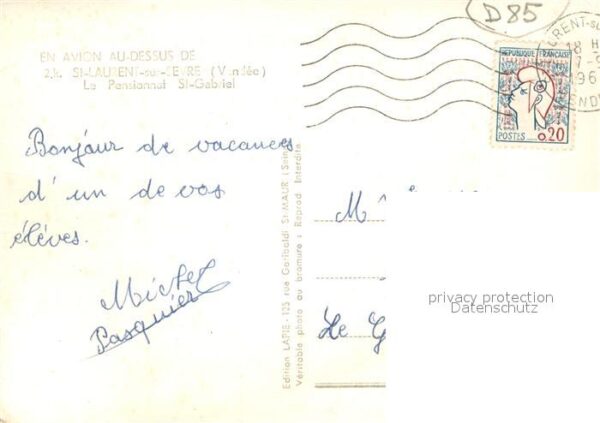 D85
EN AVION AU-DESSUS DE
2,k. St-LAURENT-sur-SEVRE (Vendée)
Le Pensionnat St-Gabriel
RENT-su
18 H
7-9
196
REPUBLIQUE FRANÇAISE
POSTES 0,20
Bonjour de vacances
d'un de vos
élèves.
Michel
Pasquier
Edition LAPIE - 125 rue Garibaldi St-MAUR (Seine)
Véritable photo au bromure : Reprod Interdite
M
Le G
privacy protection
Datenschutz